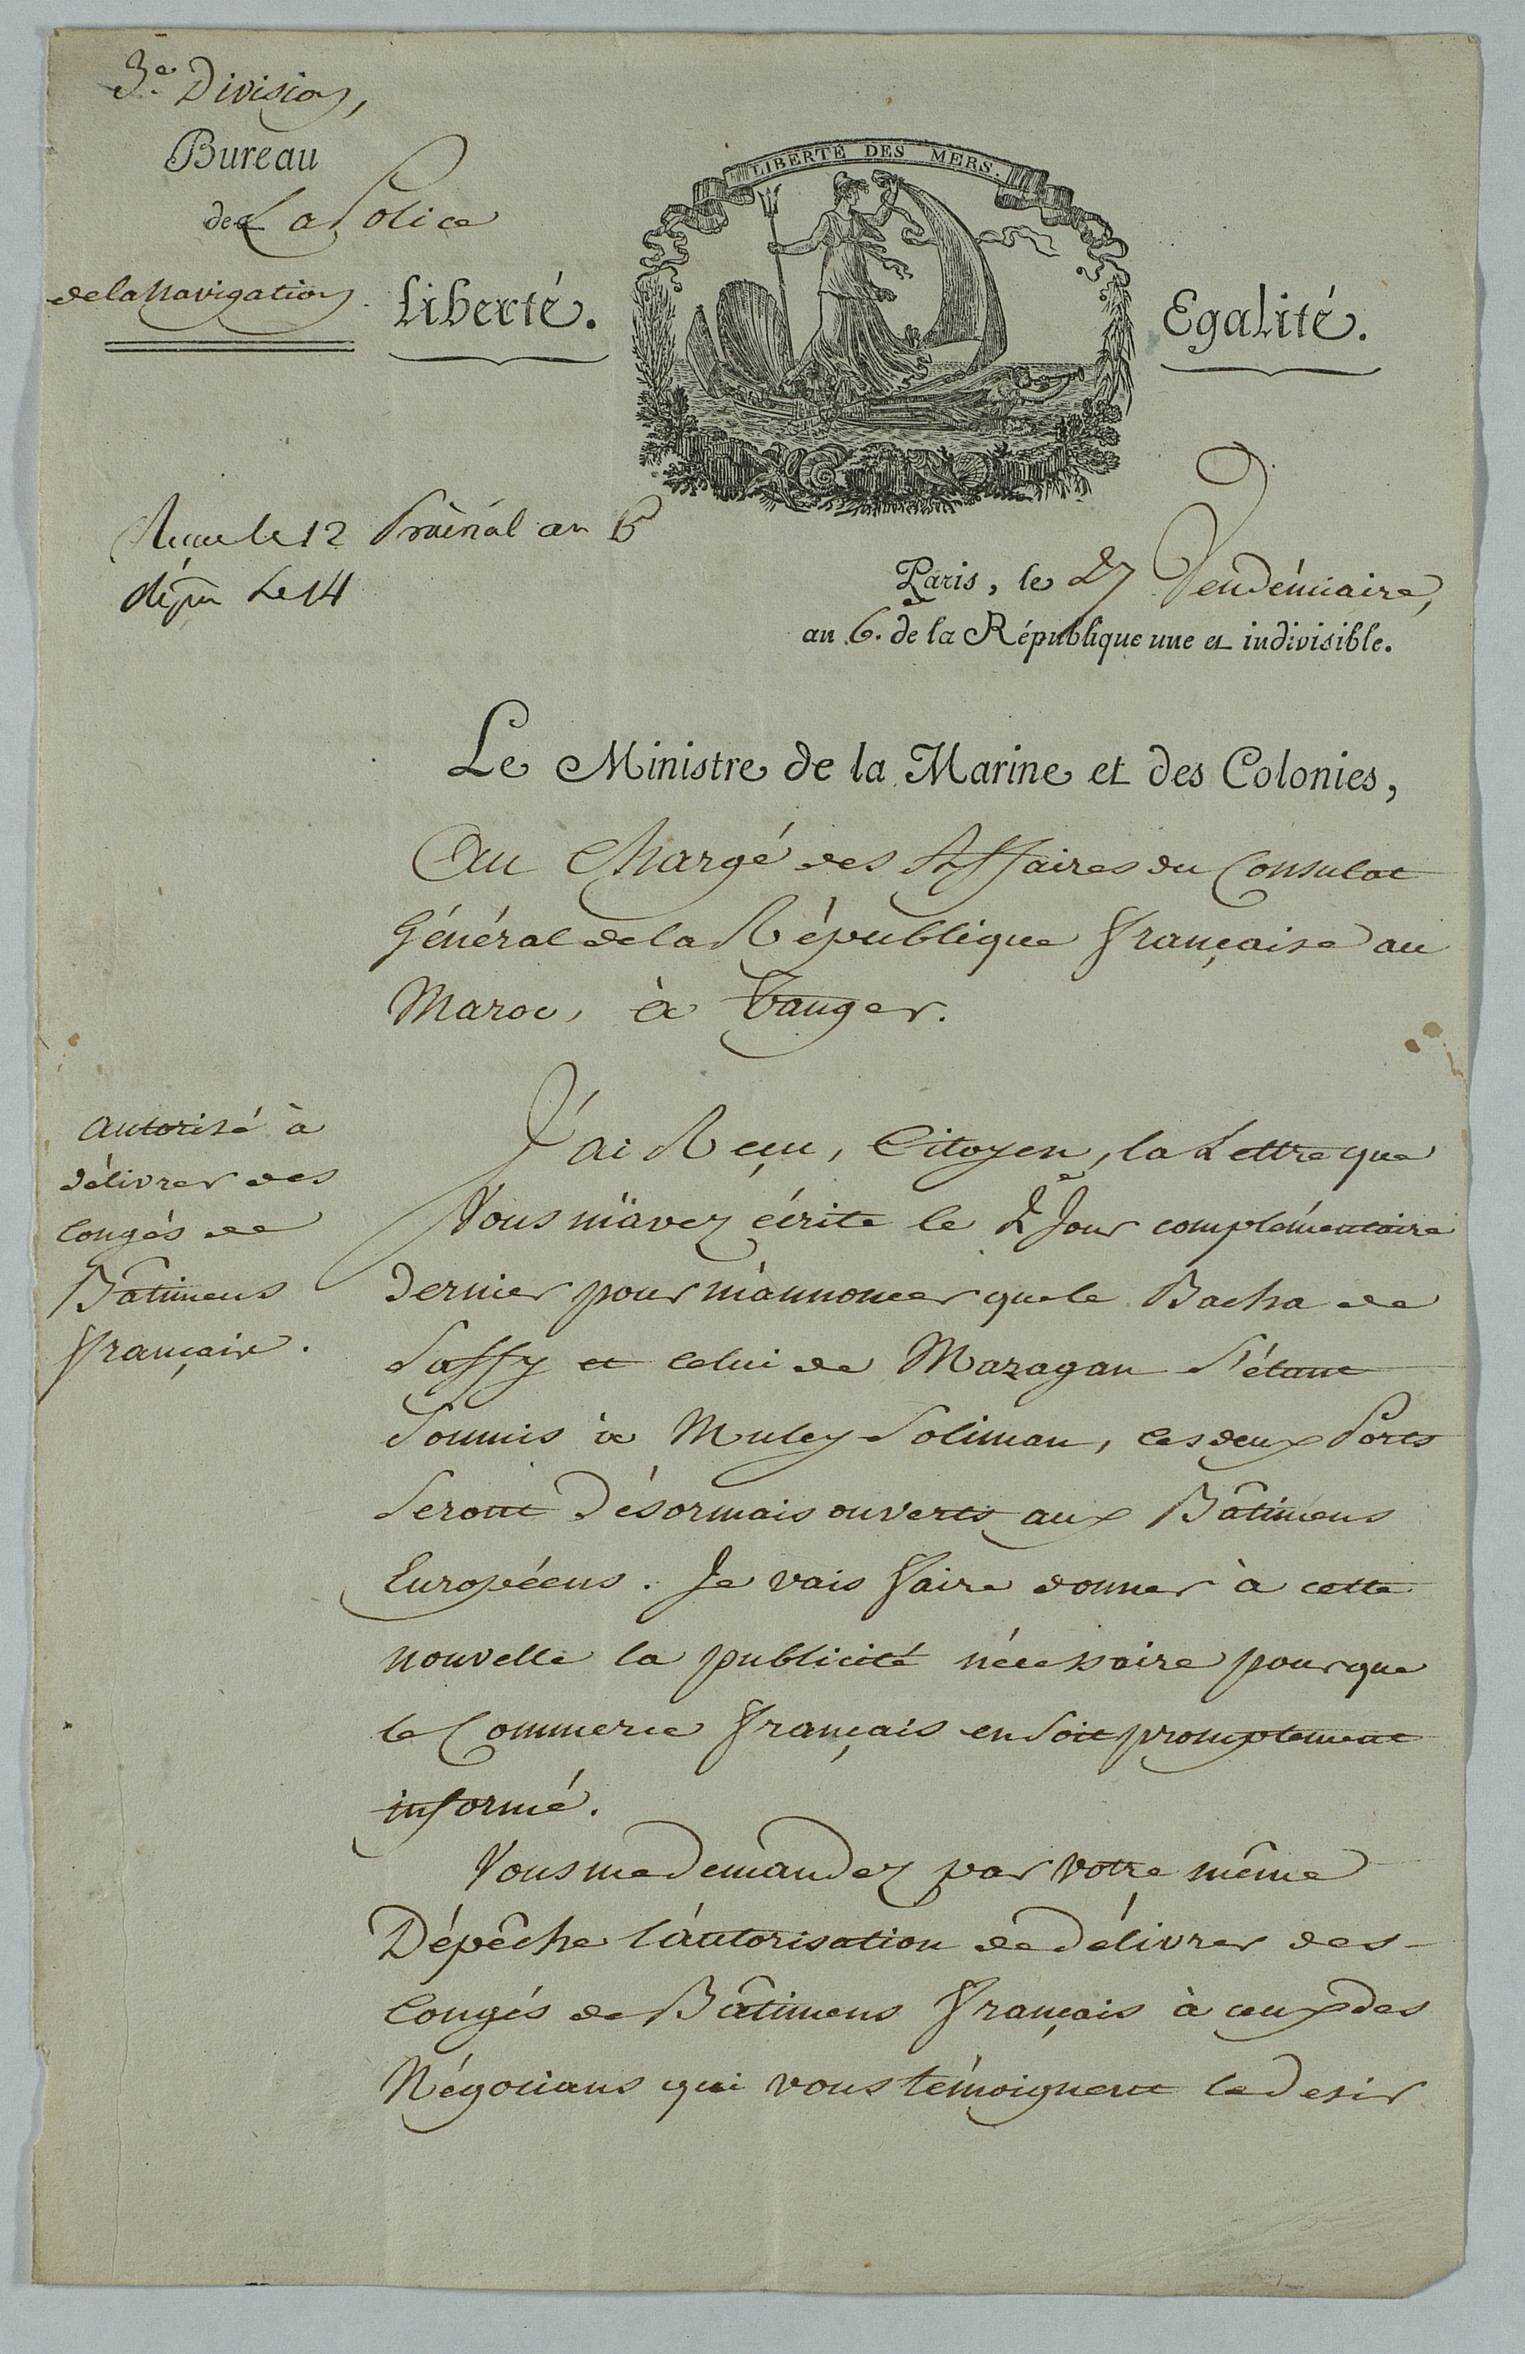 3.e Division,
Bureau
de La Police
de la Navigation.
LIBERTÉ DES MERS.
Liberté.
Egalité.
Reçue le 12 Prairial an 6
le 14
Paris, le 27 Vendémiaire,
an 6.e de la République une et indivisible.
Le Ministre de la Marine et des Colonies,
Au Chargé des Affaires du Consulat
Général de la République française au
Maroc, à Tanger.
autorisé à
délivrer des
Congés de
Bâtimens
français.
J'ai Reçu, Citoyen, la Lettre que
Vous m'avez écrite le 2e Jour complémentaire
dernier pour m'annoncer que le Bacha de
Saffy et celui de Mazagan S'étant
Soumis à Muley Soliman, les deux Ports
Seront Désormais ouverts aux Bâtimens
Européens. Je vais faire donner à cette
nouvelle la publicité nécessaire pour que
le Commerce français en Soit promptement
informé.
Vous me Demandez par votre même
Dépêche l'autorisation de Délivrer des
Congés de Bâtimens français à ceux des
Négocians qui vous témoignent le desir